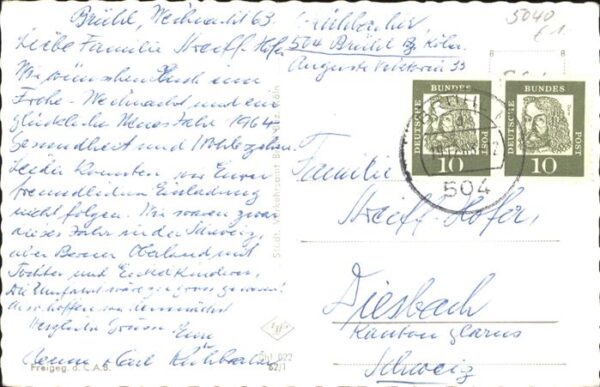 Brühl, Weihnacht 63.
Liebe Familie Streiff-Hofer
Wir wünschen Euch eine
Frohe-Weihnacht und ein
glückliches Neues Jahr 1964
Gesundheit und Wohlergehen.
Leider konnten wir Eurer
freundlichen Einladung
nicht folgen. Wir waren zwar
dieses Jahr in der Schweiz,
aber Berner Oberland mit
Tochter und Enkelkindern,
Die Umfahrt wäre zu gross gewesen!
Also hoffen wir demnächst
Herzliche Grüsse Eure
Karl
Freigeg. d.
5040
504 Brühl Bz. Köln
Auguste Viktoria 33
DEUTSCHE BUNDES POST
10
DEUTSCHE BUNDES POST
10
504
Familie
Streiff-Hofer,
Diesbach
Kanton Glarus
Schweiz
Bhl 022
62/1